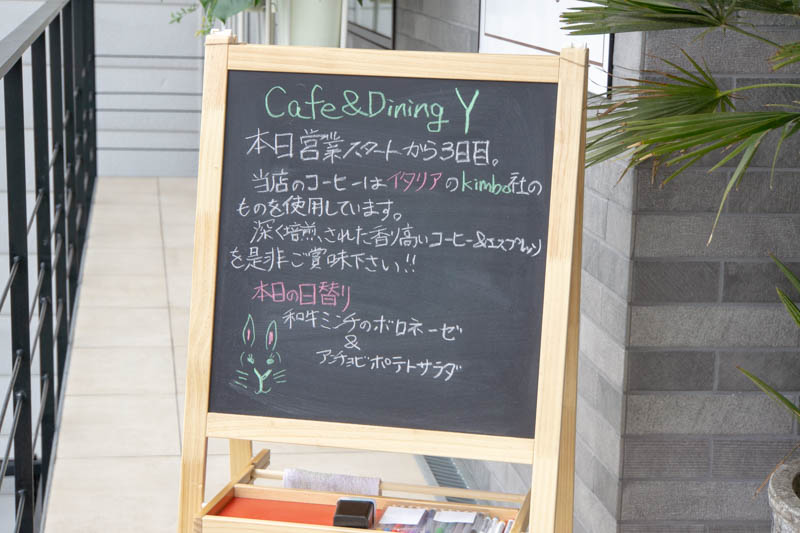 Cafe&Dining Y
本日営業スタートから3日目。
当店のコーヒーはイタリアのkimbo社の
ものを使用しています。
深く焙煎された香り高いコーヒー&エスプレッソ
を是非ご賞味下さい!!
本日の日替り
和牛ミンチのボロネーゼ
&
アンチョビポテトサラダ